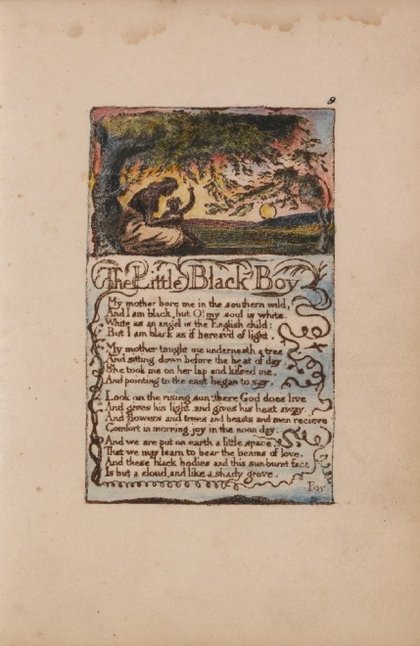 9
The Little Black Boy
My mother bore me in the southern wild,
And I am black, but O! my soul is white.
White as an angel is the English child:
But I am black as if bereav'd of light.
My mother taught me underneath a tree
And sitting down before the heat of day
She took me on her lap and kissed me,
And pointing to the east began to say.
Look on the rising sun: there God does live
And gives his light, and gives his heat away.
And flowers and trees and beasts and men recieve
Comfort in morning joy in the noon day.
And we are put on earth a little space,
That we may learn to bear the beams of love,
And these black bodies and this sun-burnt face
Is but a cloud, and like a shady grove.
For